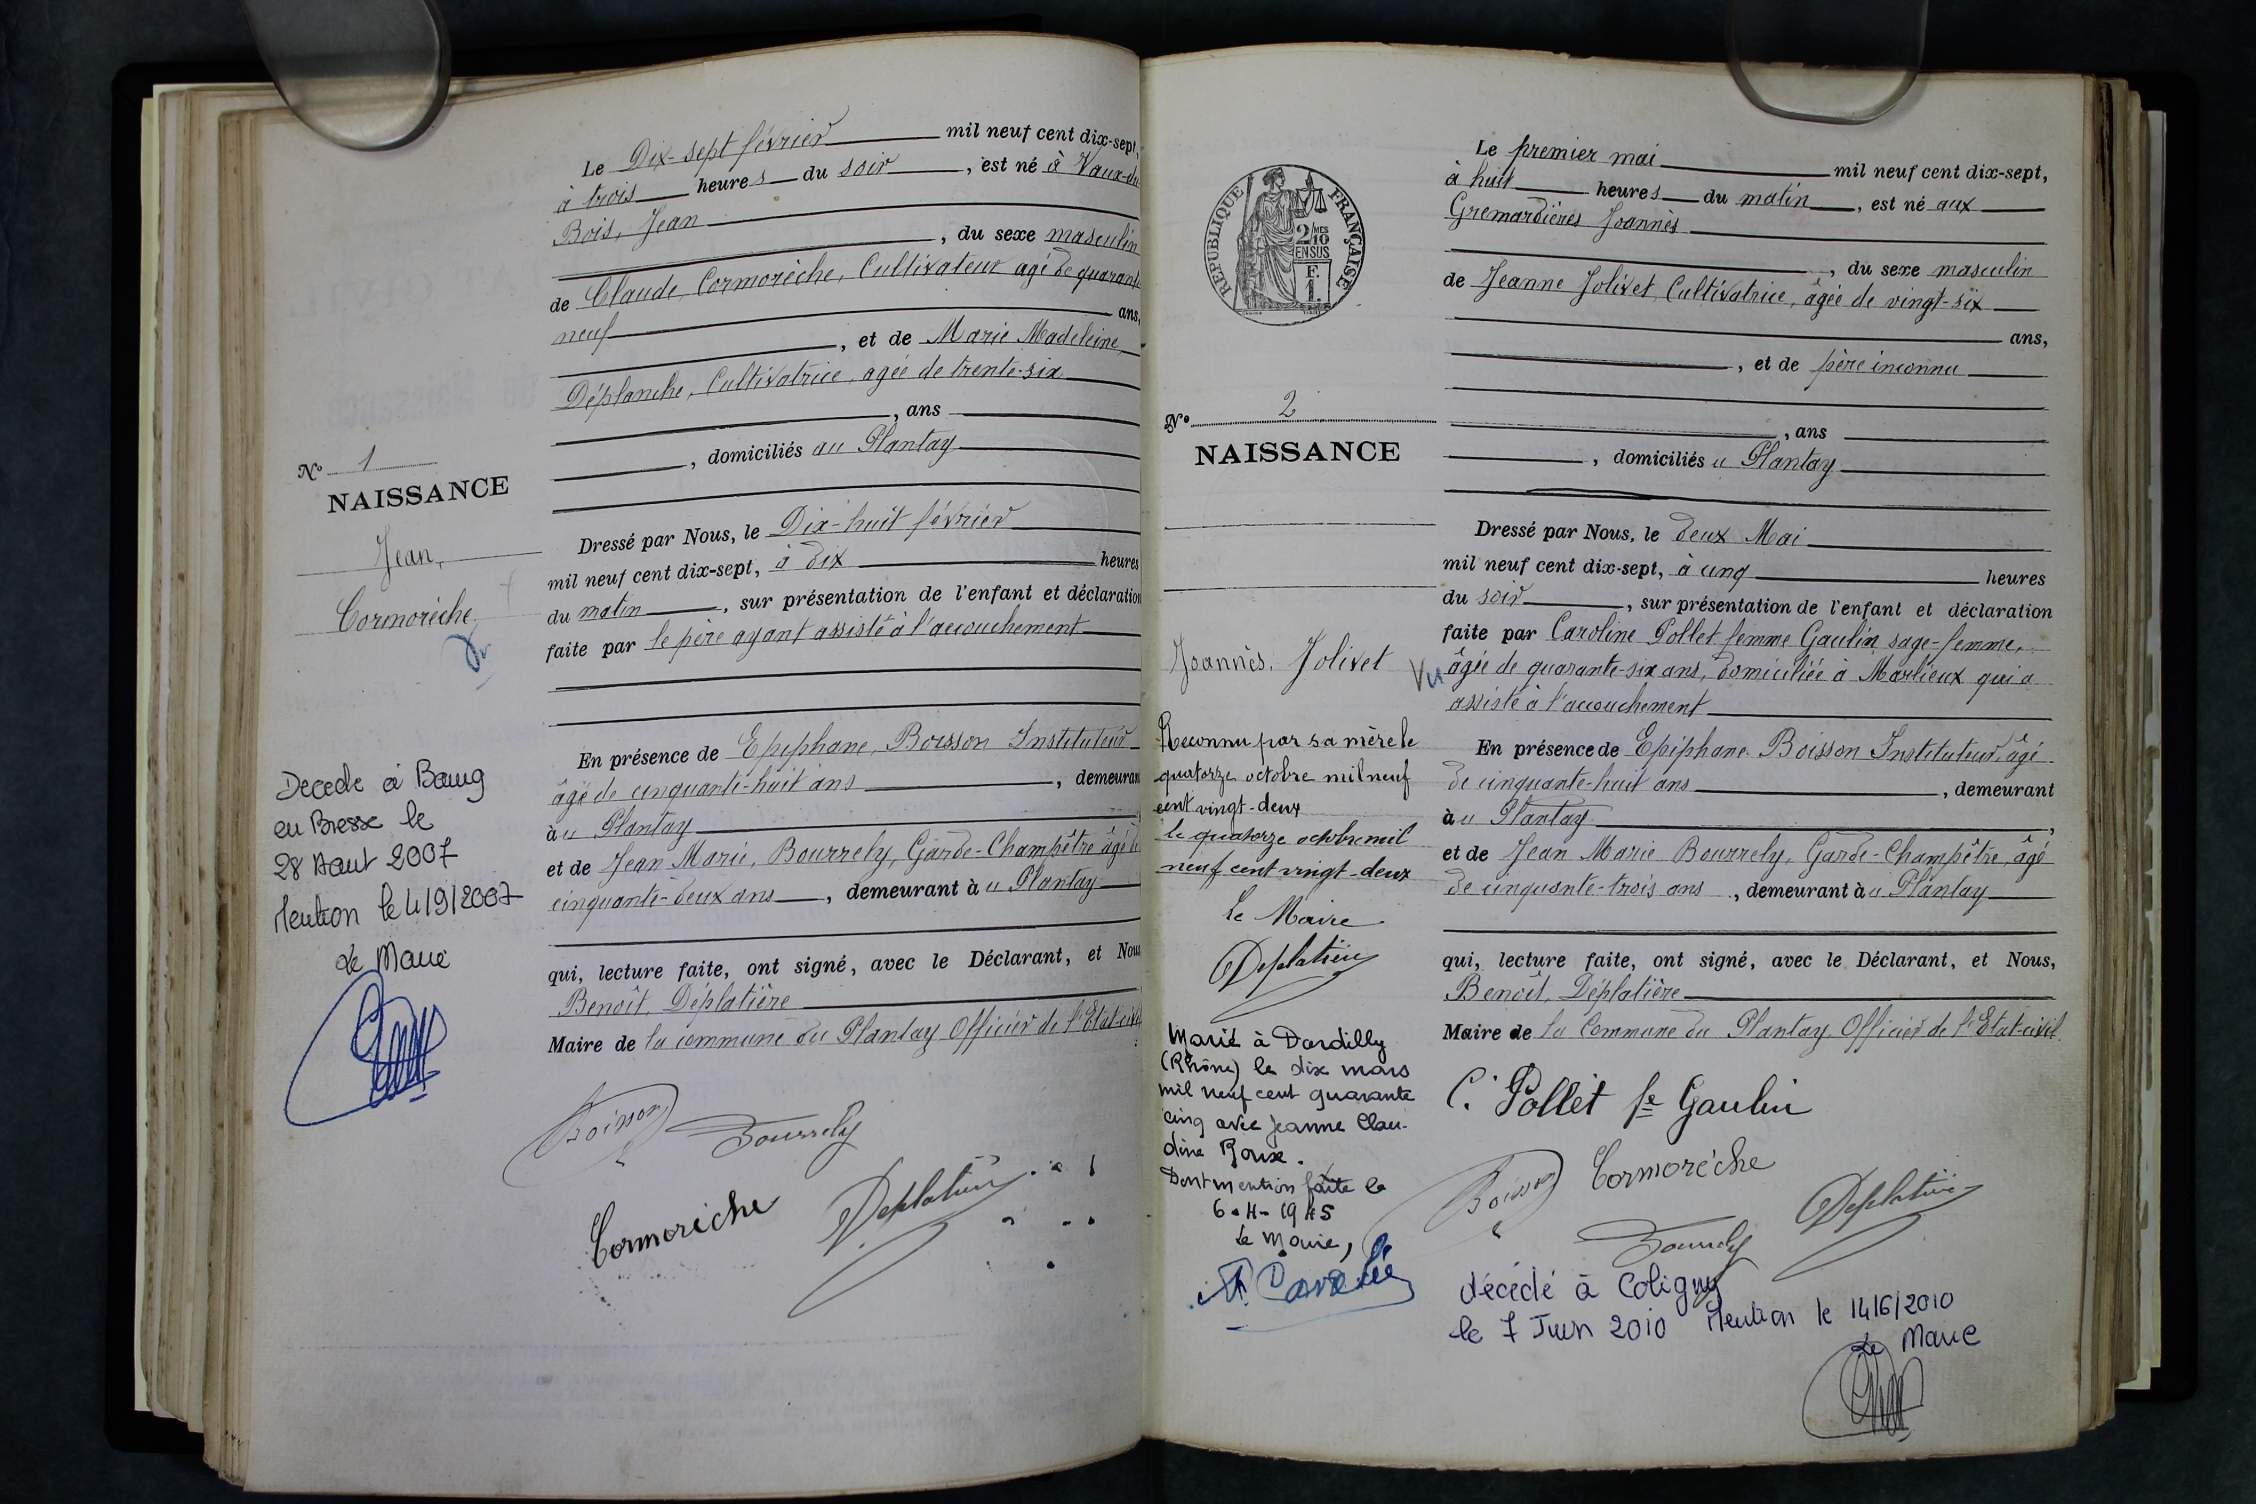 Le Dix-sept février mil neuf cent dix-sept,
à trois heures du soir, est né à Vaux-du
Bois, Jean
, du sexe masculin
de Claude, Cormorèche, Cultivateur agé de quarante
neuf ans,
, et de Marie Madeleine
Déplanche, Cultivatrice, agée de trente-six
, ans
, domiciliés au Plantay
N° 1
NAISSANCE
Jean,
Cormorèche
Dressé par Nous, le Dix-huit février
mil neuf cent dix-sept, à dix heures
du matin, sur présentation de l'enfant et déclaration
faite par le père ayant assisté à l'accouchement
En présence de Epiphane, Boisson Instituteur
âgé de cinquante-huit ans, demeurant
à u Plantay
et de Jean Marie, Bourrely, Garde-Champêtre âgé de
cinquante-deux ans, demeurant à u Plantay
qui, lecture faite, ont signé, avec le Déclarant, et Nous
Benoît, Déplatière
Maire de la commune du Plantay Officier de l'Etat-civil
Decede à Bourg
en Bresse le
28 Aout 2007
Mention le 4/9/2007
Le Maire
Boisson Bourrely
Cormorèche Deplatière
REPUBLIQUE FRANÇAISE
2/10 MES
EN SUS
F.
1.
Le premier mai mil neuf cent dix-sept,
à huit heures du matin, est né aux
Gremardières Joannès
, du sexe masculin
de Jeanne Jolivet, Cultivatrice, âgée de vingt-six
ans,
, et de père inconnu
, ans
, domiciliés u Plantay
N° 2
NAISSANCE
Joannès. Jolivet
Vu
Dressé par Nous, le deux Mai
mil neuf cent dix-sept, à cinq heures
du soir, sur présentation de l'enfant et déclaration
faite par Caroline Pollet femme Gaulin, sage-femme,
âgée de quarante-six ans, domiciliée à Marlieux qui a
assisté à l'accouchement
En présence de Epiphane Boisson Instituteur, âgé
de cinquante-huit ans, demeurant
à u Plantay,
et de Jean Marie Bourrely, Garde-Champêtre, âgé
de cinquante-trois ans, demeurant à u Plantay
qui, lecture faite, ont signé, avec le Déclarant, et Nous,
Benoît, Déplatière
Maire de la Commune du Plantay Officier de l'Etat-civil.
Reconnu par sa mère le
quatorze octobre mil neuf
cent vingt-deux
le quatorze octobre mil
neuf cent vingt-deux
Le Maire
Deplatière
Marié à Dardilly
(Rhône) le dix mars
mil neuf cent quarante
cinq avec Jeanne Clau-
dine Roux.
Dont mention faite le
6-4-1945
Le Maire,
C. Pollet fe Gaulin
Boisson Cormorèche
Bourrely Deplatière
décédé à Coligny
le 7 Juin 2010 Mention le 14/6/2010
Le Maire